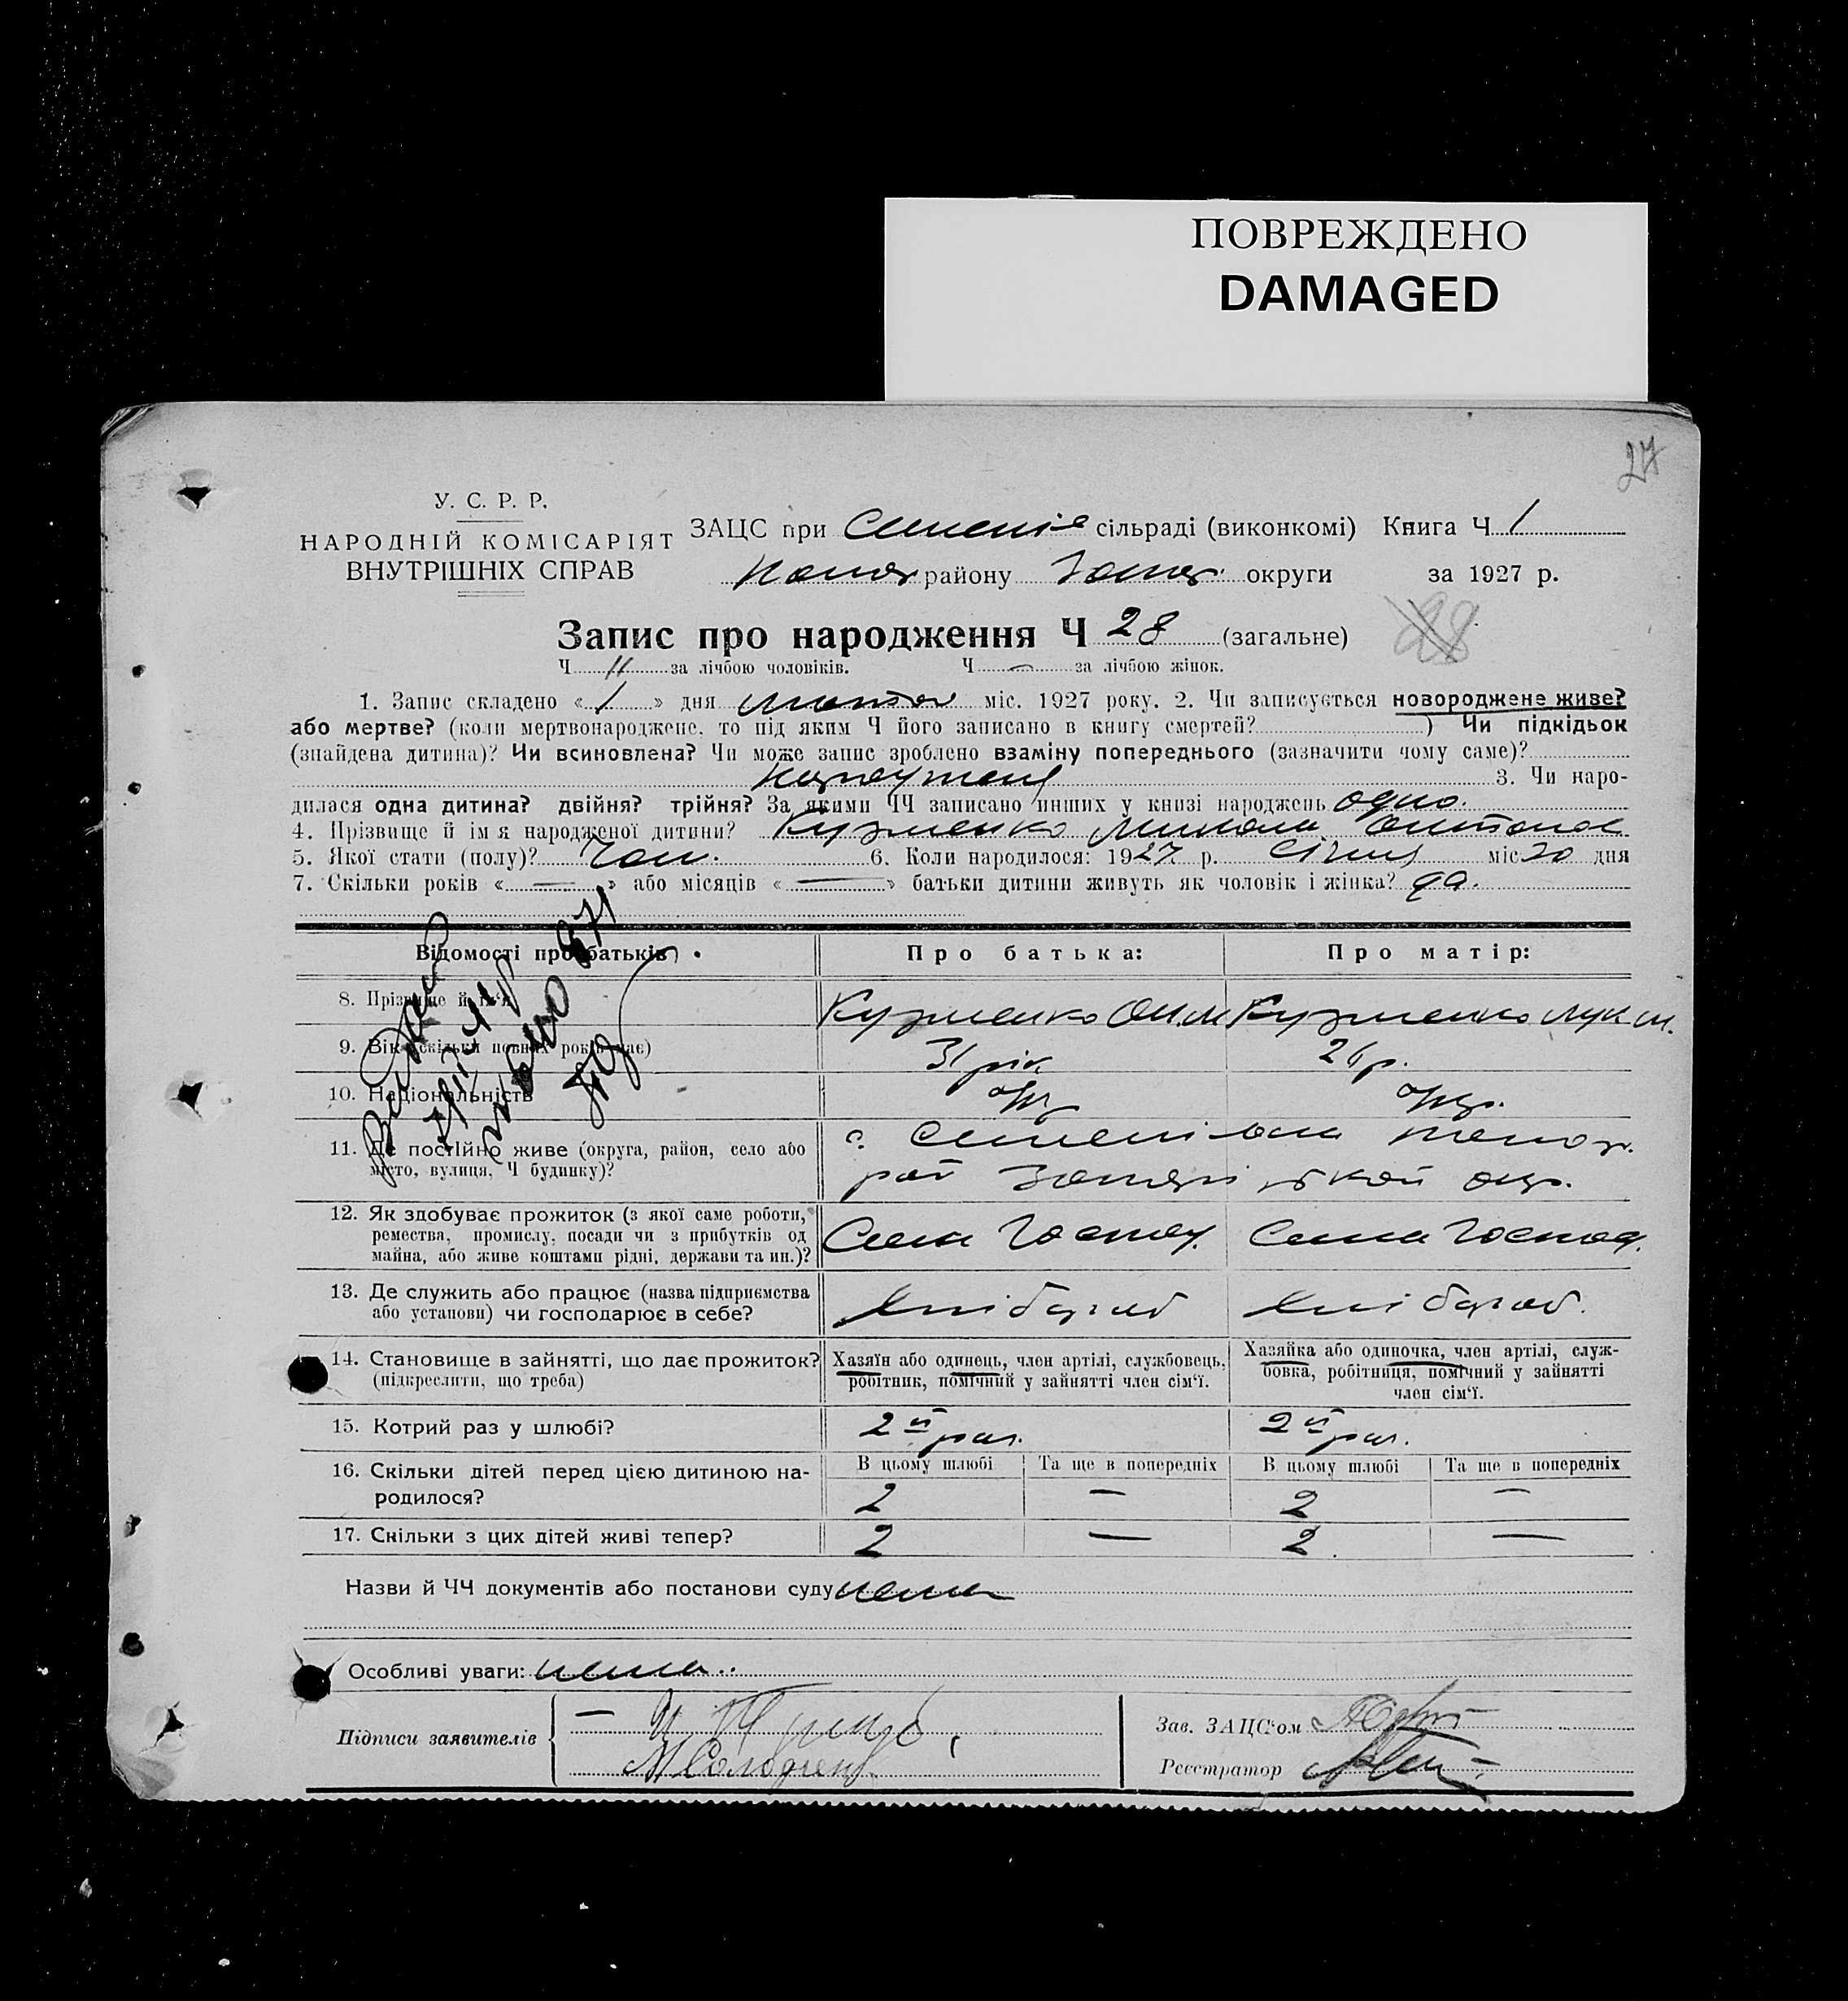 ПОВРЕЖДЕНО
DAMAGED
27
У. С. Р. Р.
НАРОДНІЙ КОМІСАРІЯТ
ВНУТРІШНІХ СПРАВ
ЗАЦС при сільраді (виконкомі) Книга Ч 1
району округи за 1927 р.
Запис про народження Ч 28 (загальне)
28
Ч 11 за лічбою чоловіків. Ч — за лічбою жінок.
1. Запис складено «1» дня міс. 1927 року. 2. Чи записується новороджене живе?
або мертве? (коли мертвонароджене, то під яким Ч його записано в книгу смертей? ) Чи підкідьок
(знайдена дитина)? Чи всиновлена? Чи може запис зроблено взаміну попереднього (зазначити чому саме)?
3. Чи наро-
дилася одна дитина? двійня? трійня? За якими ЧЧ записано инших у книзі народжень одно.
4. Прізвище й ім'я народженої дитини? Кузменко Микола
5. Якої стати (полу)? Чол. 6. Коли народилося: 1927 р. Січня міс 20 дня
7. Скільки років « — » або місяців « — » батьки дитини живуть як чоловік і жінка? да.
Відомості про батьків
Про батька:
Про матір:
8. Прізвище й ім'я
Кузменко
Кузменко
9. Вік (скільки повних років має)
31 рік
26 р.
10. Національність
укр
укр.
11. Де постійно живе (округа, район, село або
місто, вулиця, Ч будинку)?
с.
рай окр.
12. Як здобуває прожиток (з якої саме роботи,
ремества, промислу, посади чи з прибутків од
майна, або живе коштами рідні, держави та ин.)?
Сели Господ.
Сели Господ.
13. Де служить або працює (назва підприємства
або установи) чи господарює в себе?
хлібороб
хлібороб.
14. Становище в зайнятті, що дає прожиток?
(підкреслити, що треба)
Хазяїн або одинець, член артілі, службовець,
робітник, помічний у зайнятті член сім'ї.
Хазяйка або одиночка, член артілі, служ-
бовка, робітниця, помічний у зайнятті
член сім'ї.
15. Котрий раз у шлюбі?
2й раз.
2й раз.
16. Скільки дітей перед цією дитиною на-
родилося?
В цьому шлюбі Та ще в попередніх В цьому шлюбі Та ще в попередніх
2 — 2 —
17. Скільки з цих дітей живі тепер?
2 — 2 —
Назви й ЧЧ документів або постанови суду нема
Особливі уваги: нема..
Підписи заявителів
Зав. ЗАЦС'ом
Реєстратор